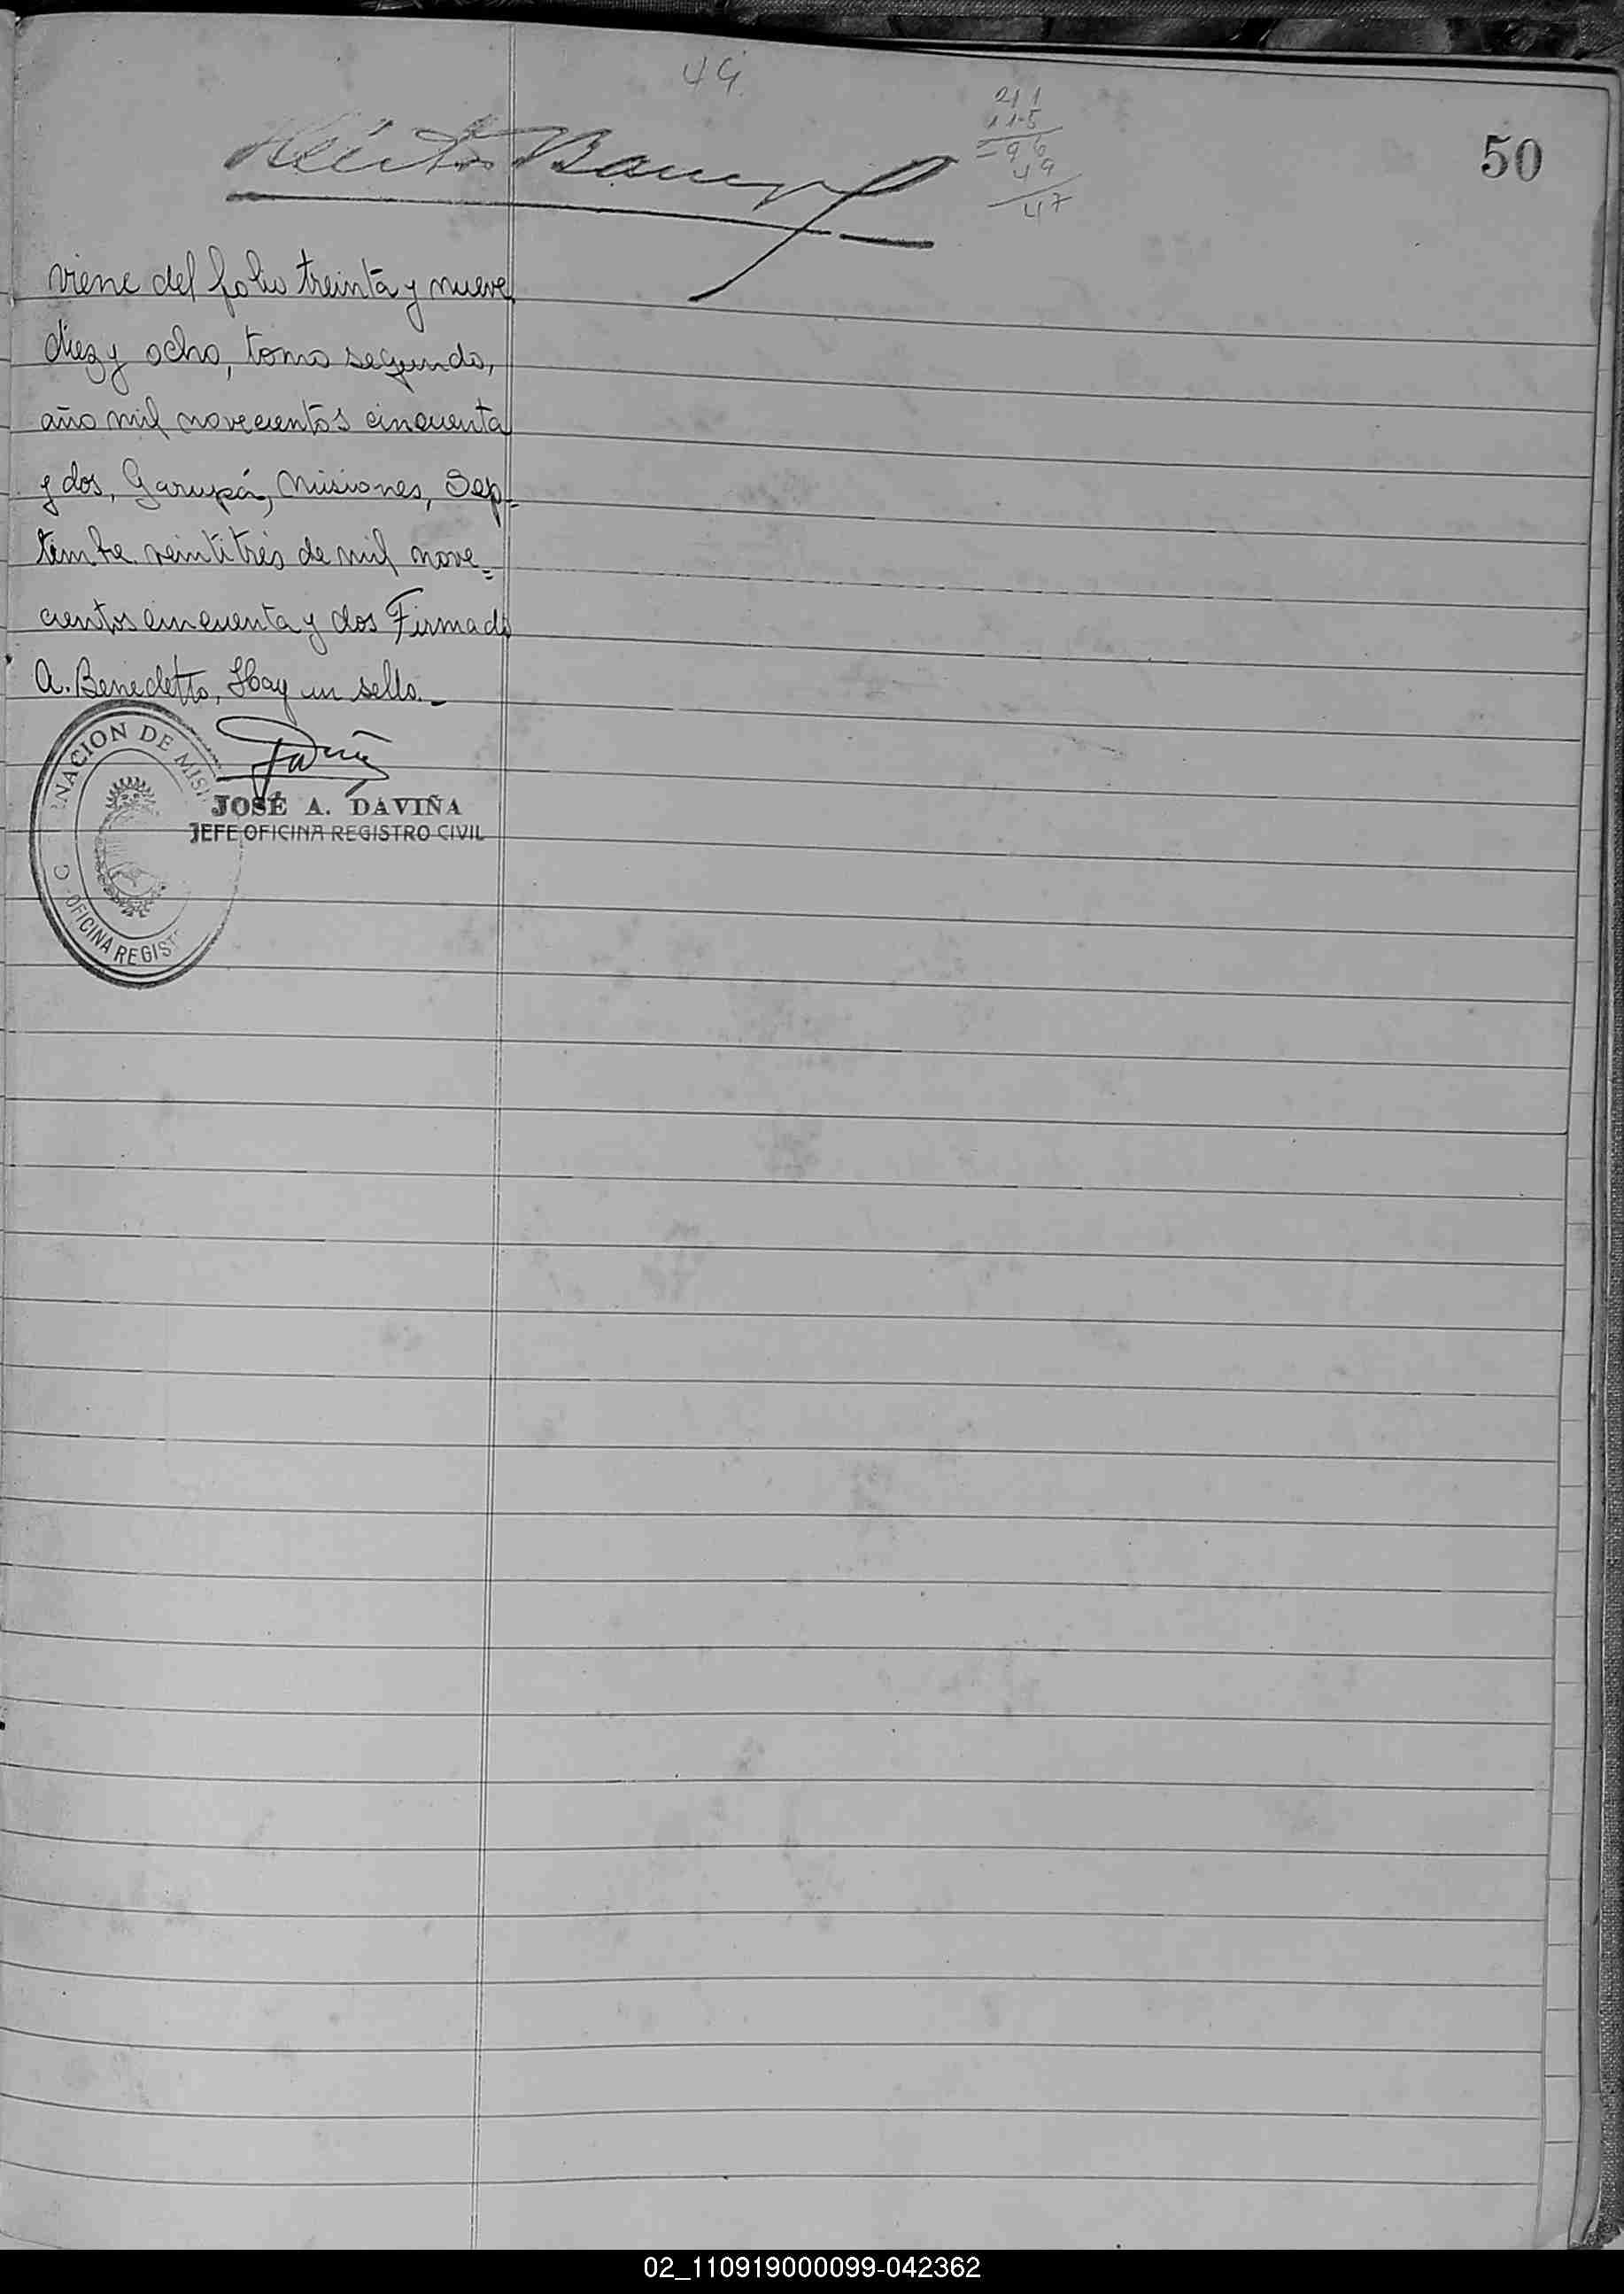 49
211
115
96
49
47
50
Héctor
viene del folio treinta y nueve
diez y ocho, tomo segundo,
año mil novecientos cincuenta
y dos, Garupá, Misiones, Sep-
tiembre veintitrés de mil nove=
cientos cincuenta y dos Firmado
A. Benedetto, Hay un sello.-
NACION DE MIS
OFICINA REGIST
JOSÉ A. DAVIÑA
JEFE OFICINA REGISTRO CIVIL
02_110919000099-042362